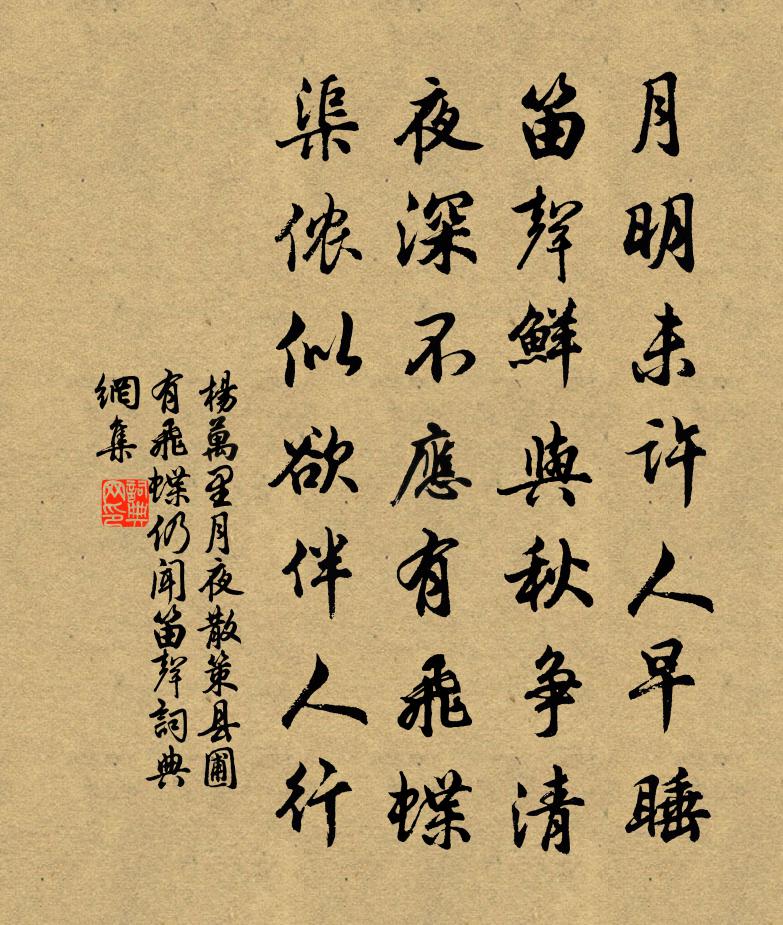 月明未许人早睡
笛聲鮮與秋争清
夜深不應有飛蝶
渠侬似欲伴人行
楊萬里月夜散策县圃
有飛蝶仍闻笛聲詞典
網集
詞典
网印